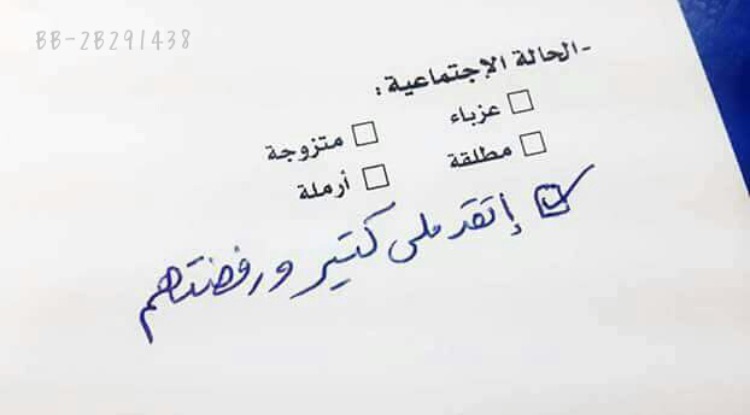 BB-2B291438
-الحالة الإجتماعية :
عزباء متزوجة
مطلقة أرملة
إتقدملى كتير ورفضتهم